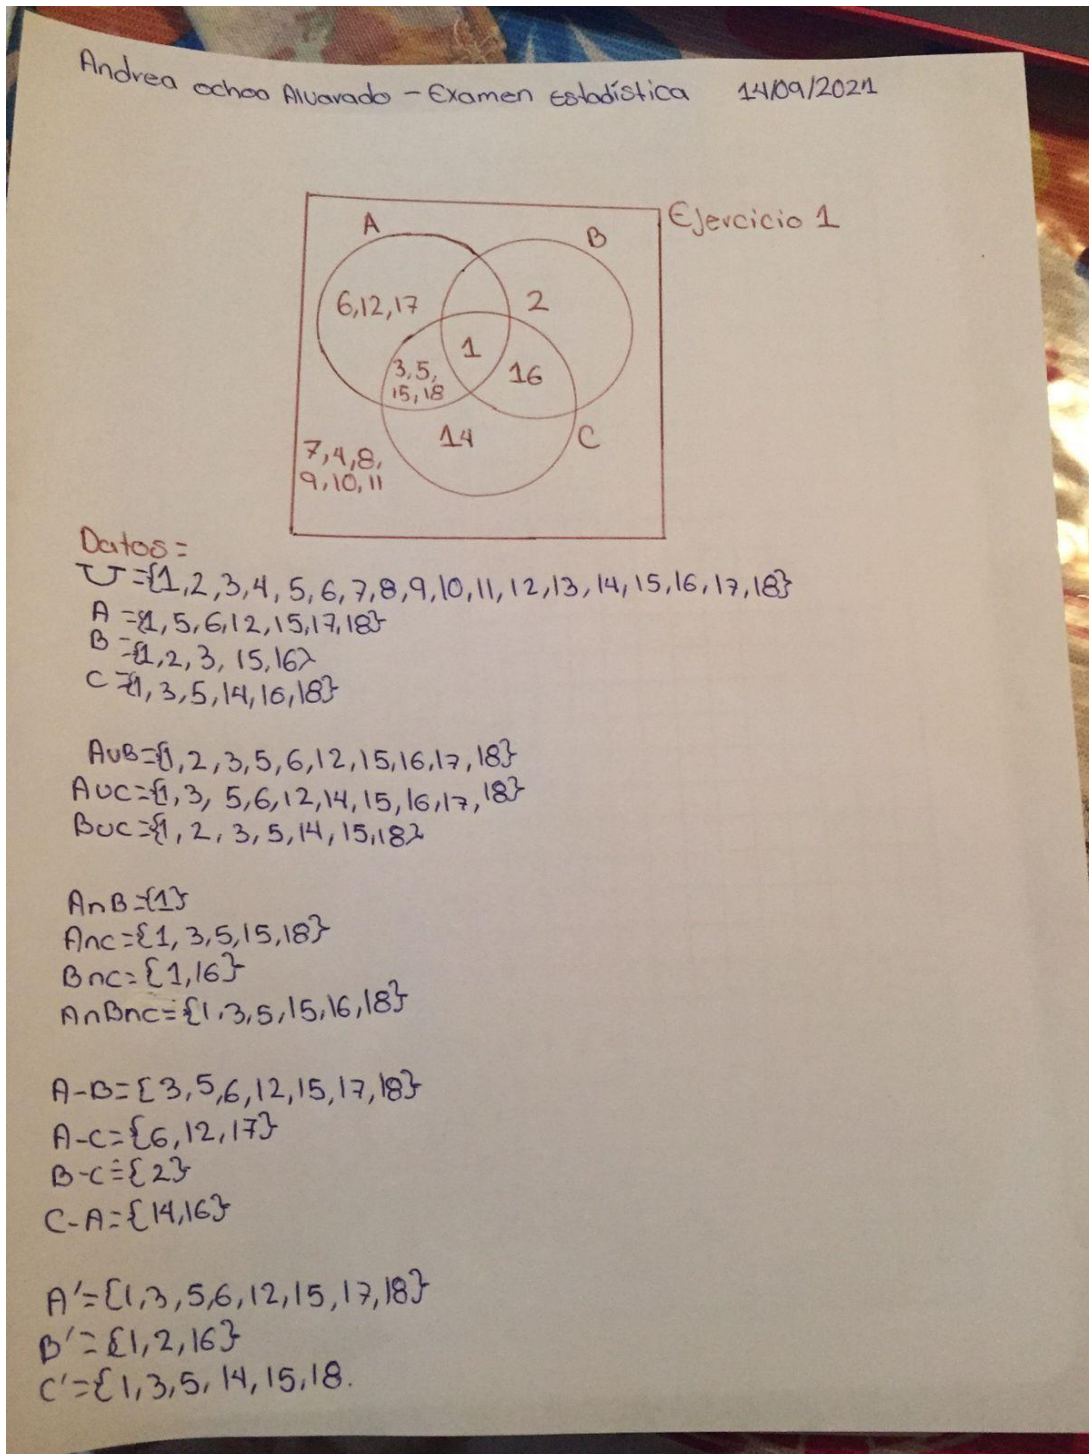 Andrea ochoa Alvarado - Examen estadística 14/09/2021
Ejercicio 1
A
B
6,12,17
2
1
3,5,
15,18
16
14
C
7,4,8,
9,10,11
Datos=
U={1,2,3,4,5,6,7,8,9,10,11,12,13,14,15,16,17,18}
A={1,5,6,12,15,17,18}
B={1,2,3,15,16}
C={1,3,5,14,16,18}
AUB={1,2,3,5,6,12,15,16,17,18}
AUC={1,3,5,6,12,14,15,16,17,18}
BUC={1,2,3,5,14,15,18}
A∩B={1}
A∩C={1,3,5,15,18}
B∩C={1,16}
A∩B∩C={1,3,5,15,16,18}
A-B={3,5,6,12,15,17,18}
A-C={6,12,17}
B-C={2}
C-A={14,16}
A'={1,3,5,6,12,15,17,18}
B'={1,2,16}
C'={1,3,5,14,15,18.